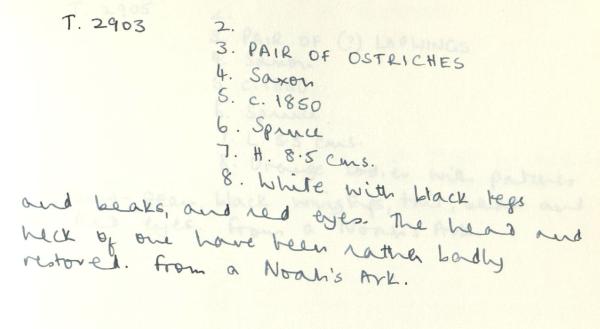 T. 2903 2.
3. PAIR OF OSTRICHES
4. Saxon
5. c. 1850
6. Spruce
7. H. 8.5 cms.
8. White with black legs
and beaks, and red eyes. The head and
neck of one have been rather badly
restored. From a Noah's Ark.